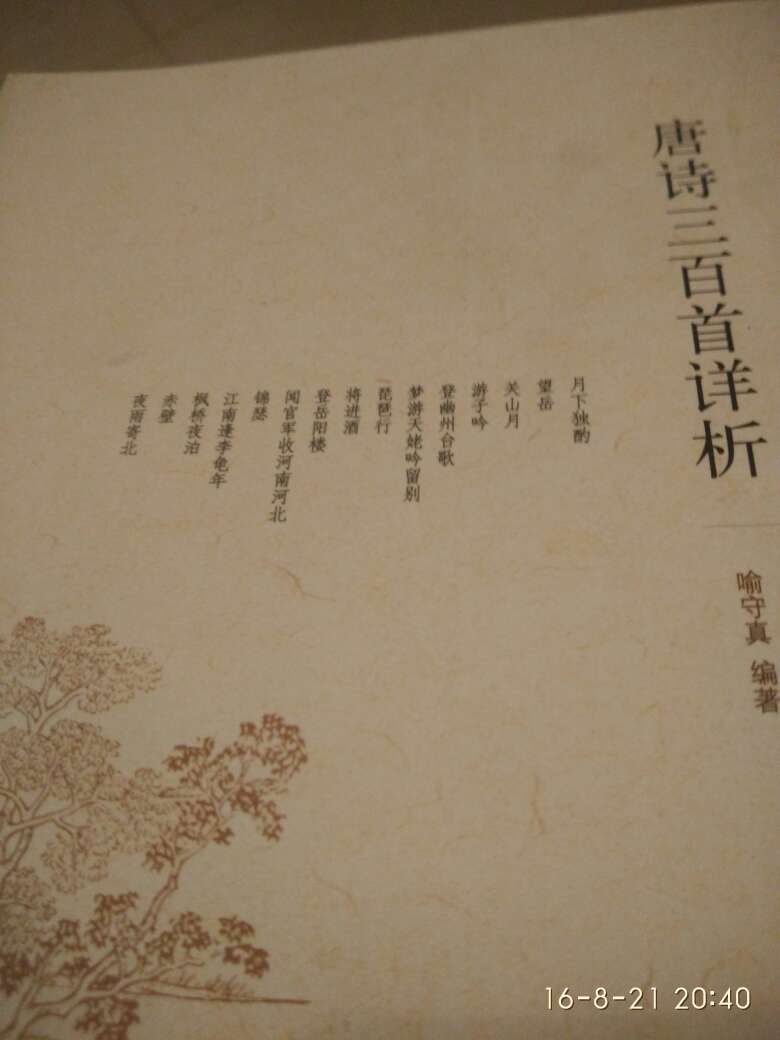 唐诗三百首详析
喻守真 编著
月下独酌
望岳
关山月
游子吟
登幽州台歌
梦游天姥吟留别
琵琶行
将进酒
登岳阳楼
闻官军收河南河北
锦瑟
江南逢李龟年
枫桥夜泊
赤壁
夜雨寄北
16-8-21 20:40